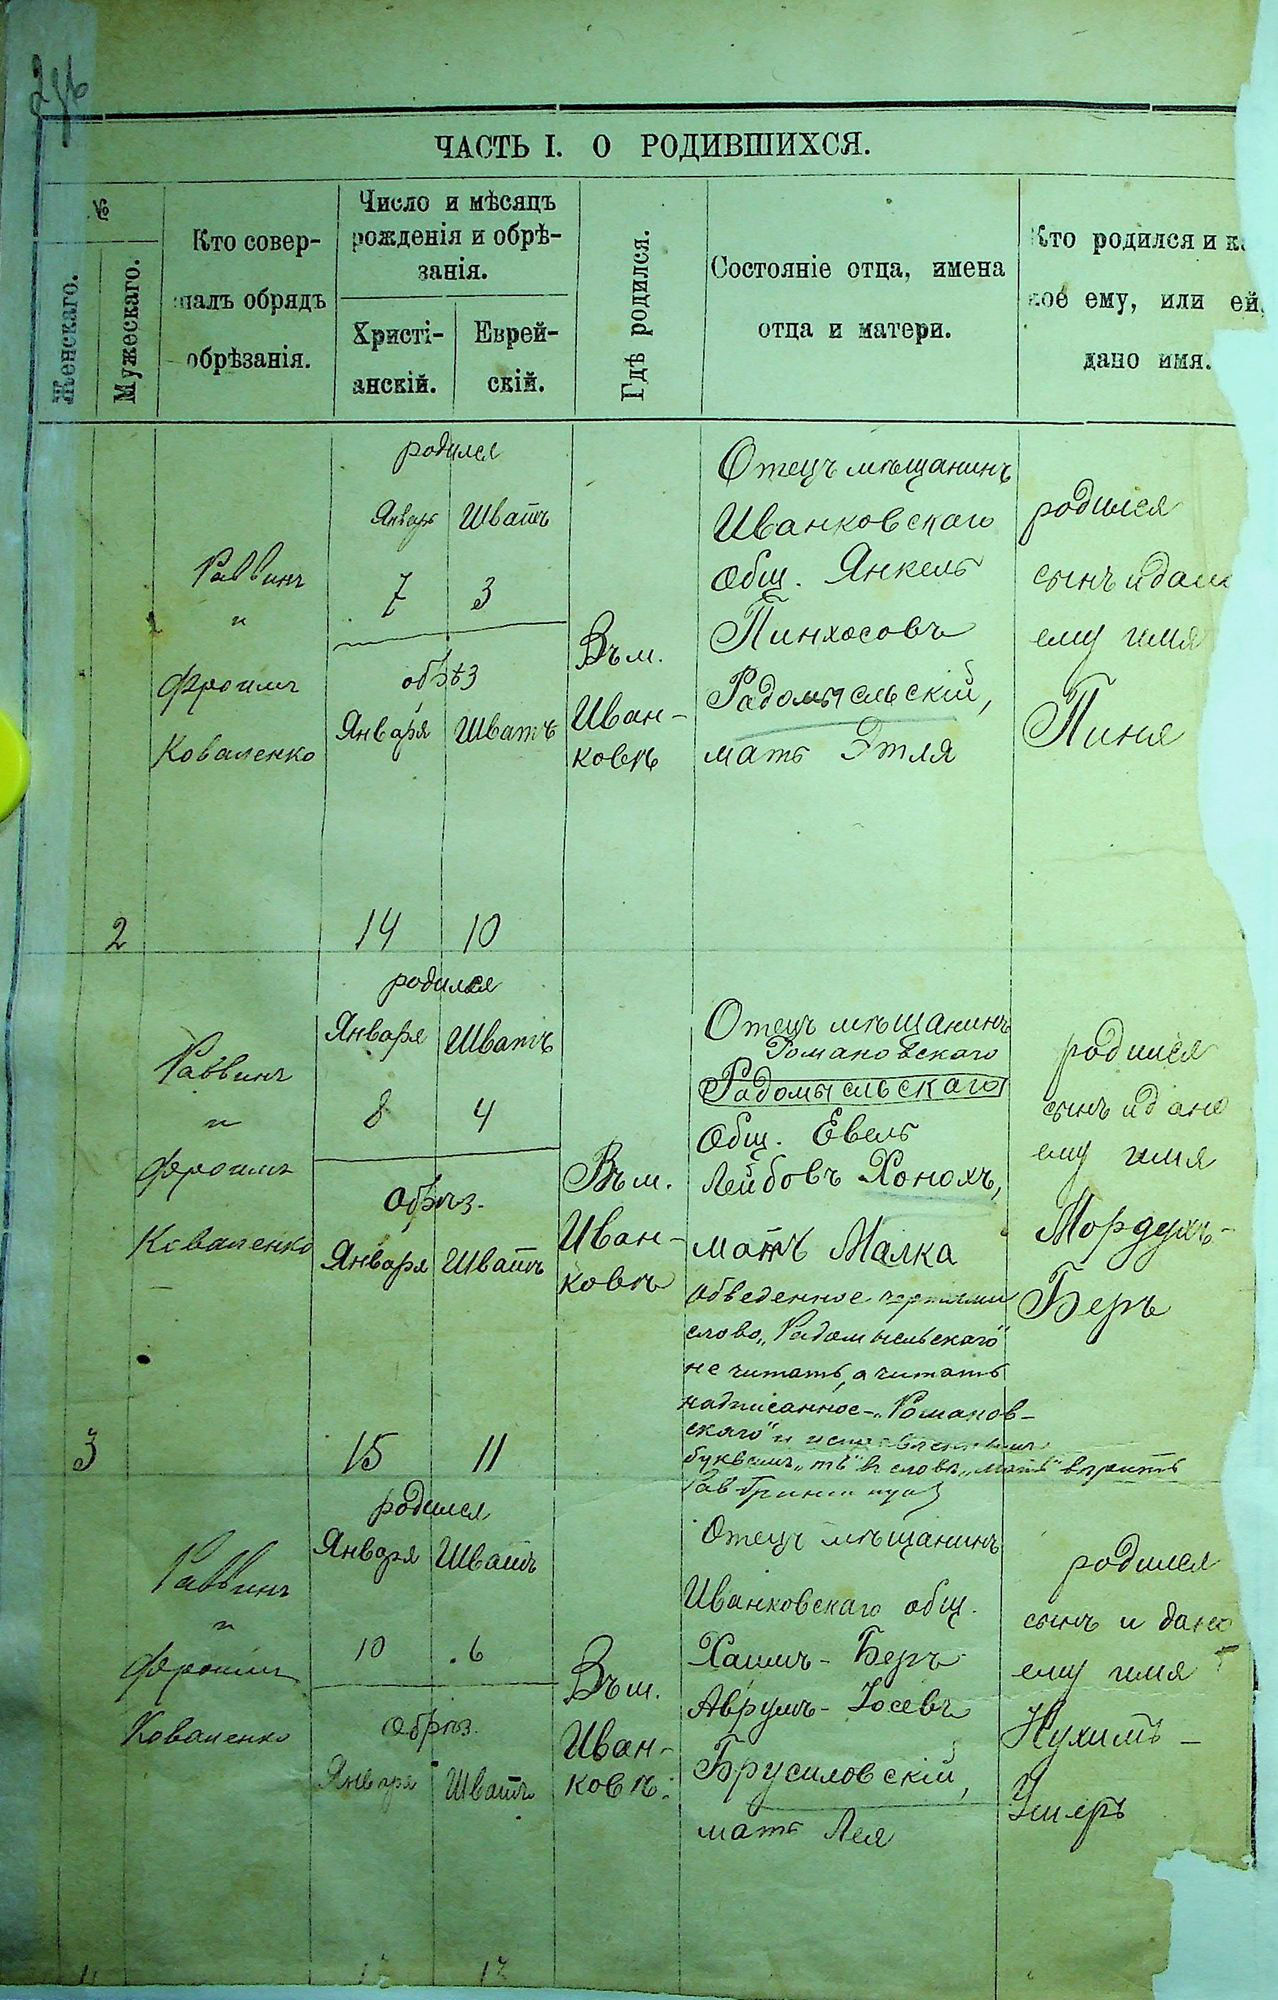 ЧАСТЬ I. О РОДИВШИХСЯ.
№
Женскаго.
Мужескаго.
Кто совер-
шалъ обрядъ
обрѣзанія.
Число и мѣсяцъ
рожденія и обрѣ-
занія.
Христі-
анскій.
Еврей-
скій.
Гдѣ родился.
Состояніе отца, имена
отца и матери.
Кто родился и ка
кое ему, или ей,
дано имя.
2
Раввинъ
"
Фроимъ
Коваленко
родился
Январь Шватъ
7 3
обрѣз
Января Шватъ
14 10
Въ м.
Иван-
ковѣ
Отецъ мѣщанинъ
Иванковскаго
общ. Янкель
Пинхосовъ
Радомысльскій,
мать Этля
родился
сынъ и дано
ему имя
Пиня
3
Раввинъ
"
Фроимъ
Коваленко
родился
Января Шватъ
8 4
Обрѣз.
Января Шватъ
15 11
Въ м.
Иван-
ковѣ
Отецъ мѣщанинъ
Романовскаго
Радомысльскаго
Общ. Евель
Лейбовъ Хонохъ,
мать Малка
Обведенное чертами
слово „Радомысльскаго"
не читать, а читать
надписанное - „Романов-
скаго" и исправленнымъ
буквамъ „ть" въ словѣ „мать" вѣрить
родился
сынъ и дано
ему имя
Мордухъ-
Беръ
Раввинъ
"
Фроимъ
Коваленко
родился
Января Шватъ
10 6
Обрѣз.
Января Шватъ
Въ м.
Иван-
ковѣ.
Отецъ мѣщанинъ
Иванковскаго общ.
Хаимъ - Беръ
Аврумъ - Іосевъ
Брусиловскій,
мать Лея
родился
сынъ и дано
ему имя
Нухимъ -
Ушеръ